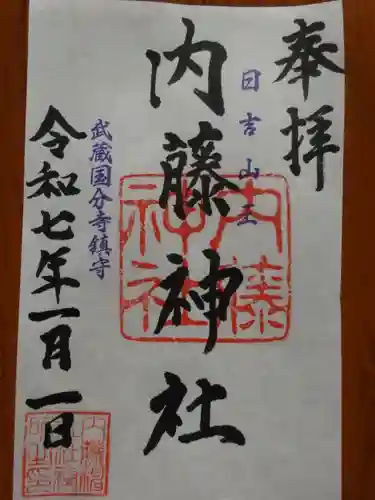 奉拝
日吉山王
内藤神社
武蔵国分寺鎮守
令和七年一月一日
内藤神社